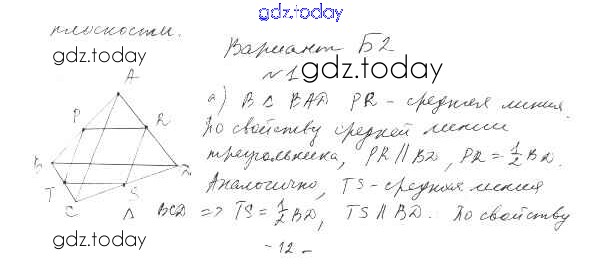 gdz.today
плоскости.
gdz.today
Вариант Б2
№1
gdz.today
A
P
R
B
D
T
S
C
а) В Δ BAD PR - средняя линия.
По свойству средней линии
треугольника, PR ∥ BD, PR = 1/2 BD.
Аналогично, TS - средняя линия
Δ BCD => TS = 1/2 BD, TS ∥ BD. По свойству
gdz.today
- 12 -